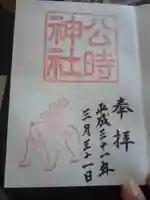 奉拝
公時神社
平成三十一年
三月三十一日